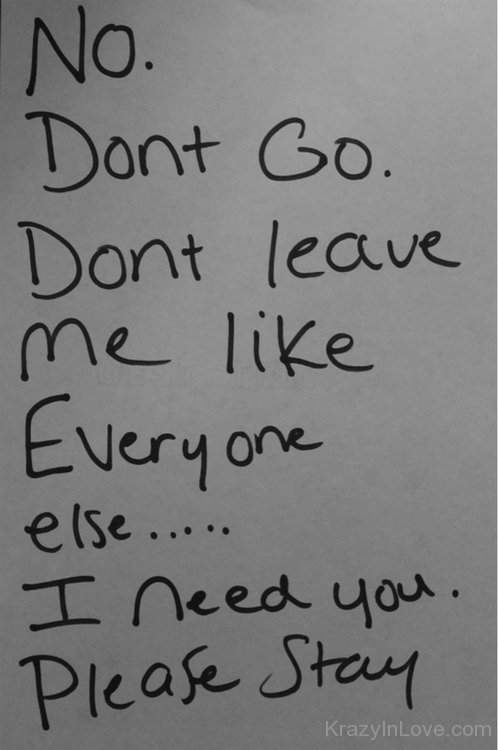 No.
Dont Go.
Dont leave
me like
Everyone
else.....
I need you.
Please Stay
KrazyInLove.com